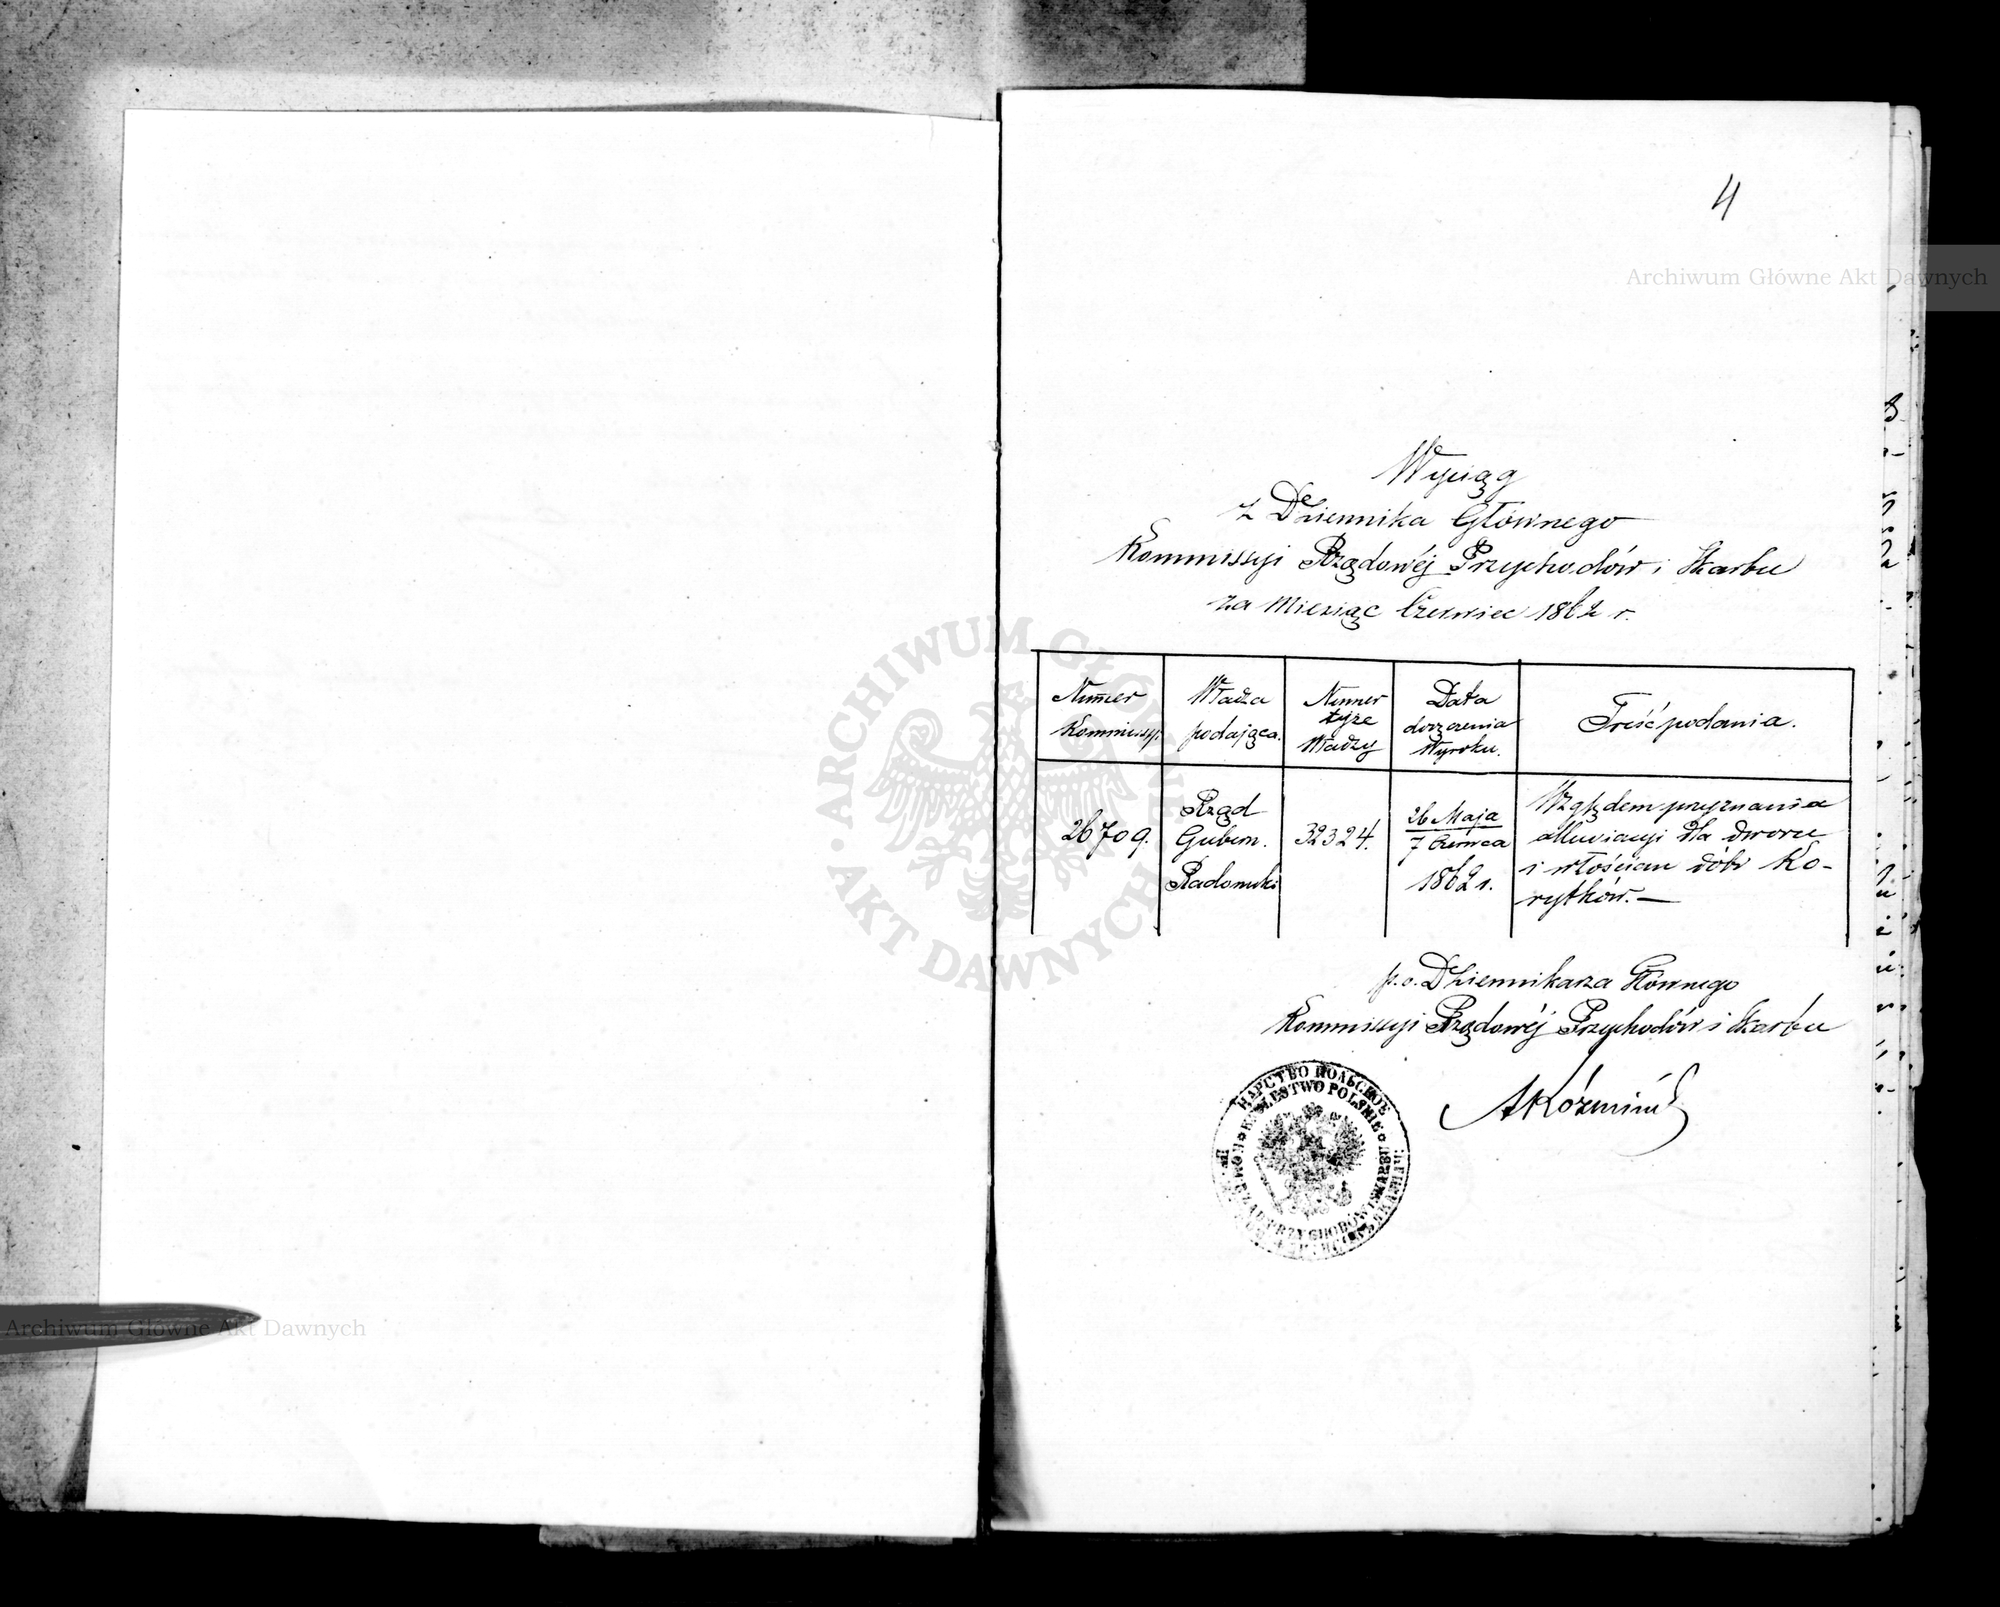 4
Archiwum Główne Akt Dawnych
Wyciąg
z Dziennika Głównego
Kommissyi Rządowéj Przychodów i Skarbu
za Miesiąc Czerwiec 1862 r.
Numer Kommissyi
Władza podająca.
Numer tyże Władzy
Data doręczenia Wyroku.
Treść podania.
26709.
Rząd Gubern. Radomski
32324.
26 Maja
7 Czerwca
1862 r.
Względem przyznania
alluwiacyi dla dworu
i włościan dóbr Ko-
rytków.—
p.o. Dziennikarza Głównego
Kommissyi Rządowéj Przychodów i Skarbu
AKoźmiń
ЦАРСТВО ПОЛЬСКОЕ
KRÓLESTWO POLSKIE
PRZYCHODÓW I SKARBU
ARCHIWUM GŁÓWNE AKT DAWNYCH
Archiwum Główne Akt Dawnych